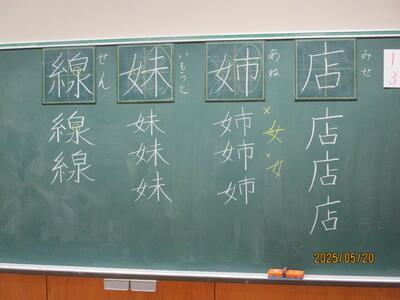 店 みせ
店
店
店
姉 あね
姉
姉
姉
×女
×女
妹 いもうと
妹
妹
妹
線 せん
線
線
1
3
2025/05/20